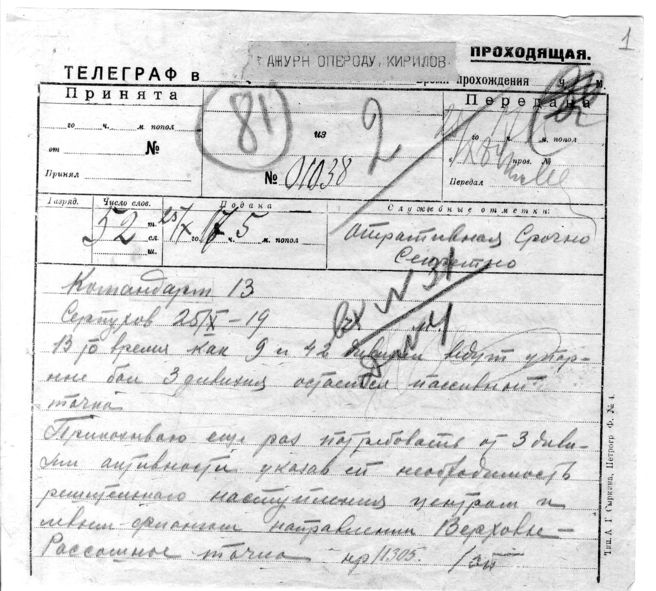 1
ДЖУРН ОПЕРОДУ, КИРИЛОВ
ПРОХОДЯЩАЯ.
ТЕЛЕГРАФ в
Время прохождения ч. м.
Принята
81
из
2
Передана
го ч. м. попол
го ч. м. попол
от №
пров. №
Принял
№ 01038
Передал
Разряд.
Число слов.
Подана
Служебные отметки:
52
т.
сл.
ш.
25/X го ч. 5 м. попол
Оперативная Срочно
Секретно
Командарм 13
Серпухов 25/X-19
вх N 31
В то время как 9 и 42 дивизии ведут упор-
ные бои 3 дивизия остается пассивной
точка
Приказываю еще раз потребовать от 3 диви-
зии активности указав ей необходимость
решительного наступления центром и
левым флангом направлении Верховье-
Россошное точка нр/1305.
Тип. А. Г. Сыркина, Петрогр Ф. № 4.